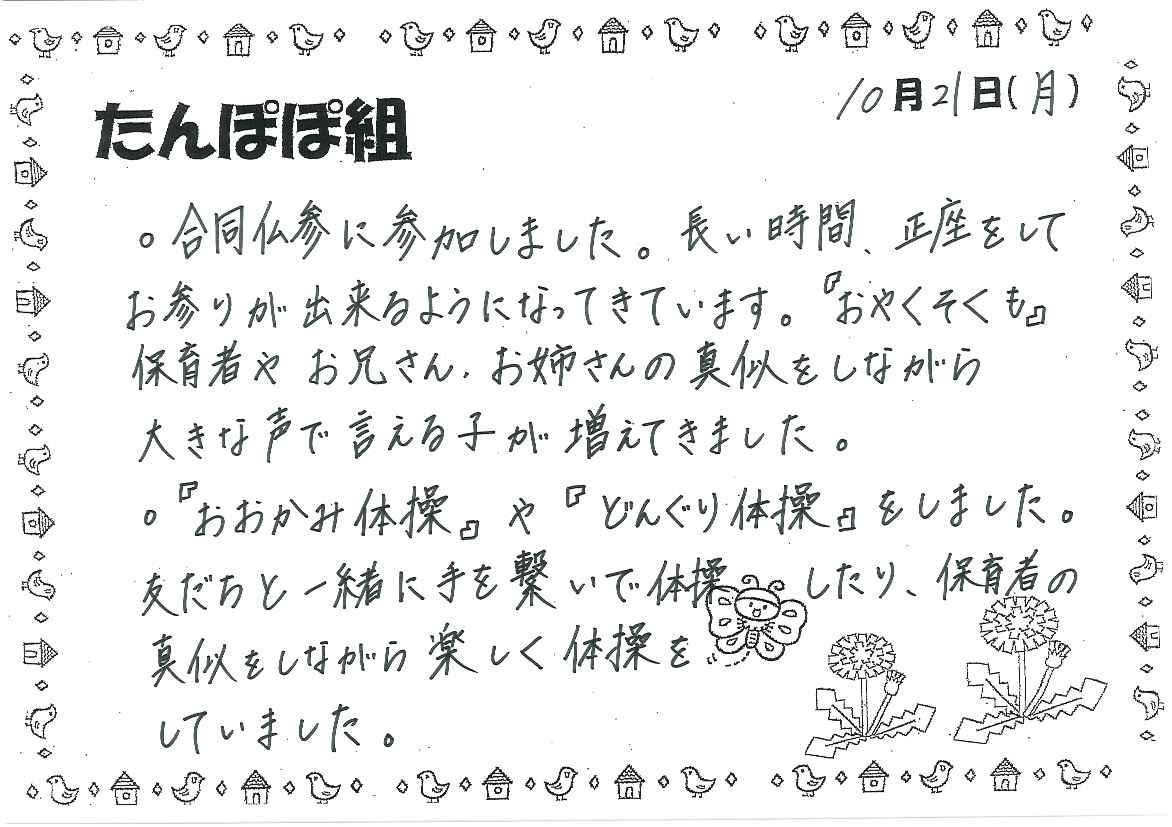 10月21日(月)
たんぽぽ組
。合同仏参に参加しました。長い時間、正座をして
お参りが出来るようになってきています。『おやくそくも』
保育者やお兄さん、お姉さんの真似をしながら
大きな声で言える子が増えてきました。
。『おおかみ体操』や『どんぐり体操』をしました。
友だちと一緒に手を繋いで体操したり、保育者の
真似をしながら楽しく体操を
していました。